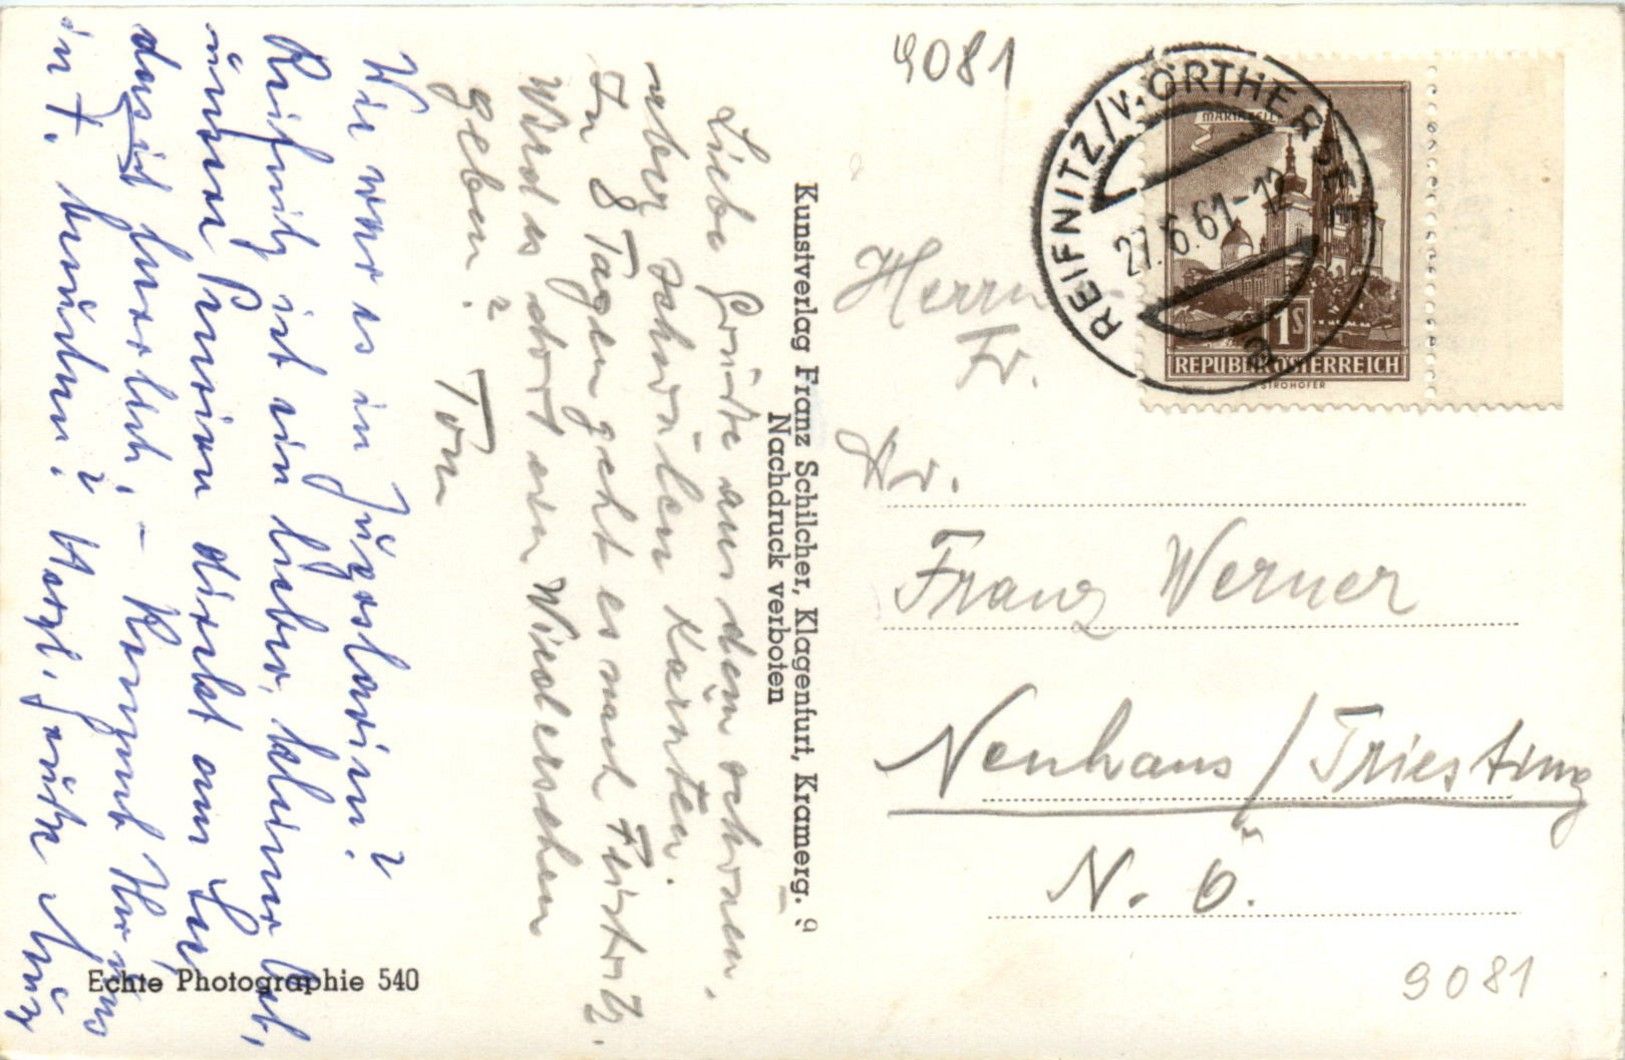 9081
REIFNITZ/WÖRTHERSEE
27.6.61-12
a
MARIAZELL
1S
REPUBLIK ÖSTERREICH
STROHOFER
Herrn
Fr.
Hr.
Franz Werner
Neuhaus / Triesting
N. Ö.
9081
Kunstverlag Franz Schilcher, Klagenfurt, Kramerg. 9
Nachdruck verboten
Liebe Grüße aus dem schönen,
aber schwülen Kärnten.
In 8 Tagen geht es nach Feistritz.
Wird es dort ein Wiedersehen
geben? Toni
Wie war es in Jugoslawien?
Reifnitz ist ein lieber, kleiner Ort,
unsere Pension direkt am See,
das ist herrlich. - Kommt Ihr uns
in F. besuchen? Herzl. Grüße
Echte Photographie 540